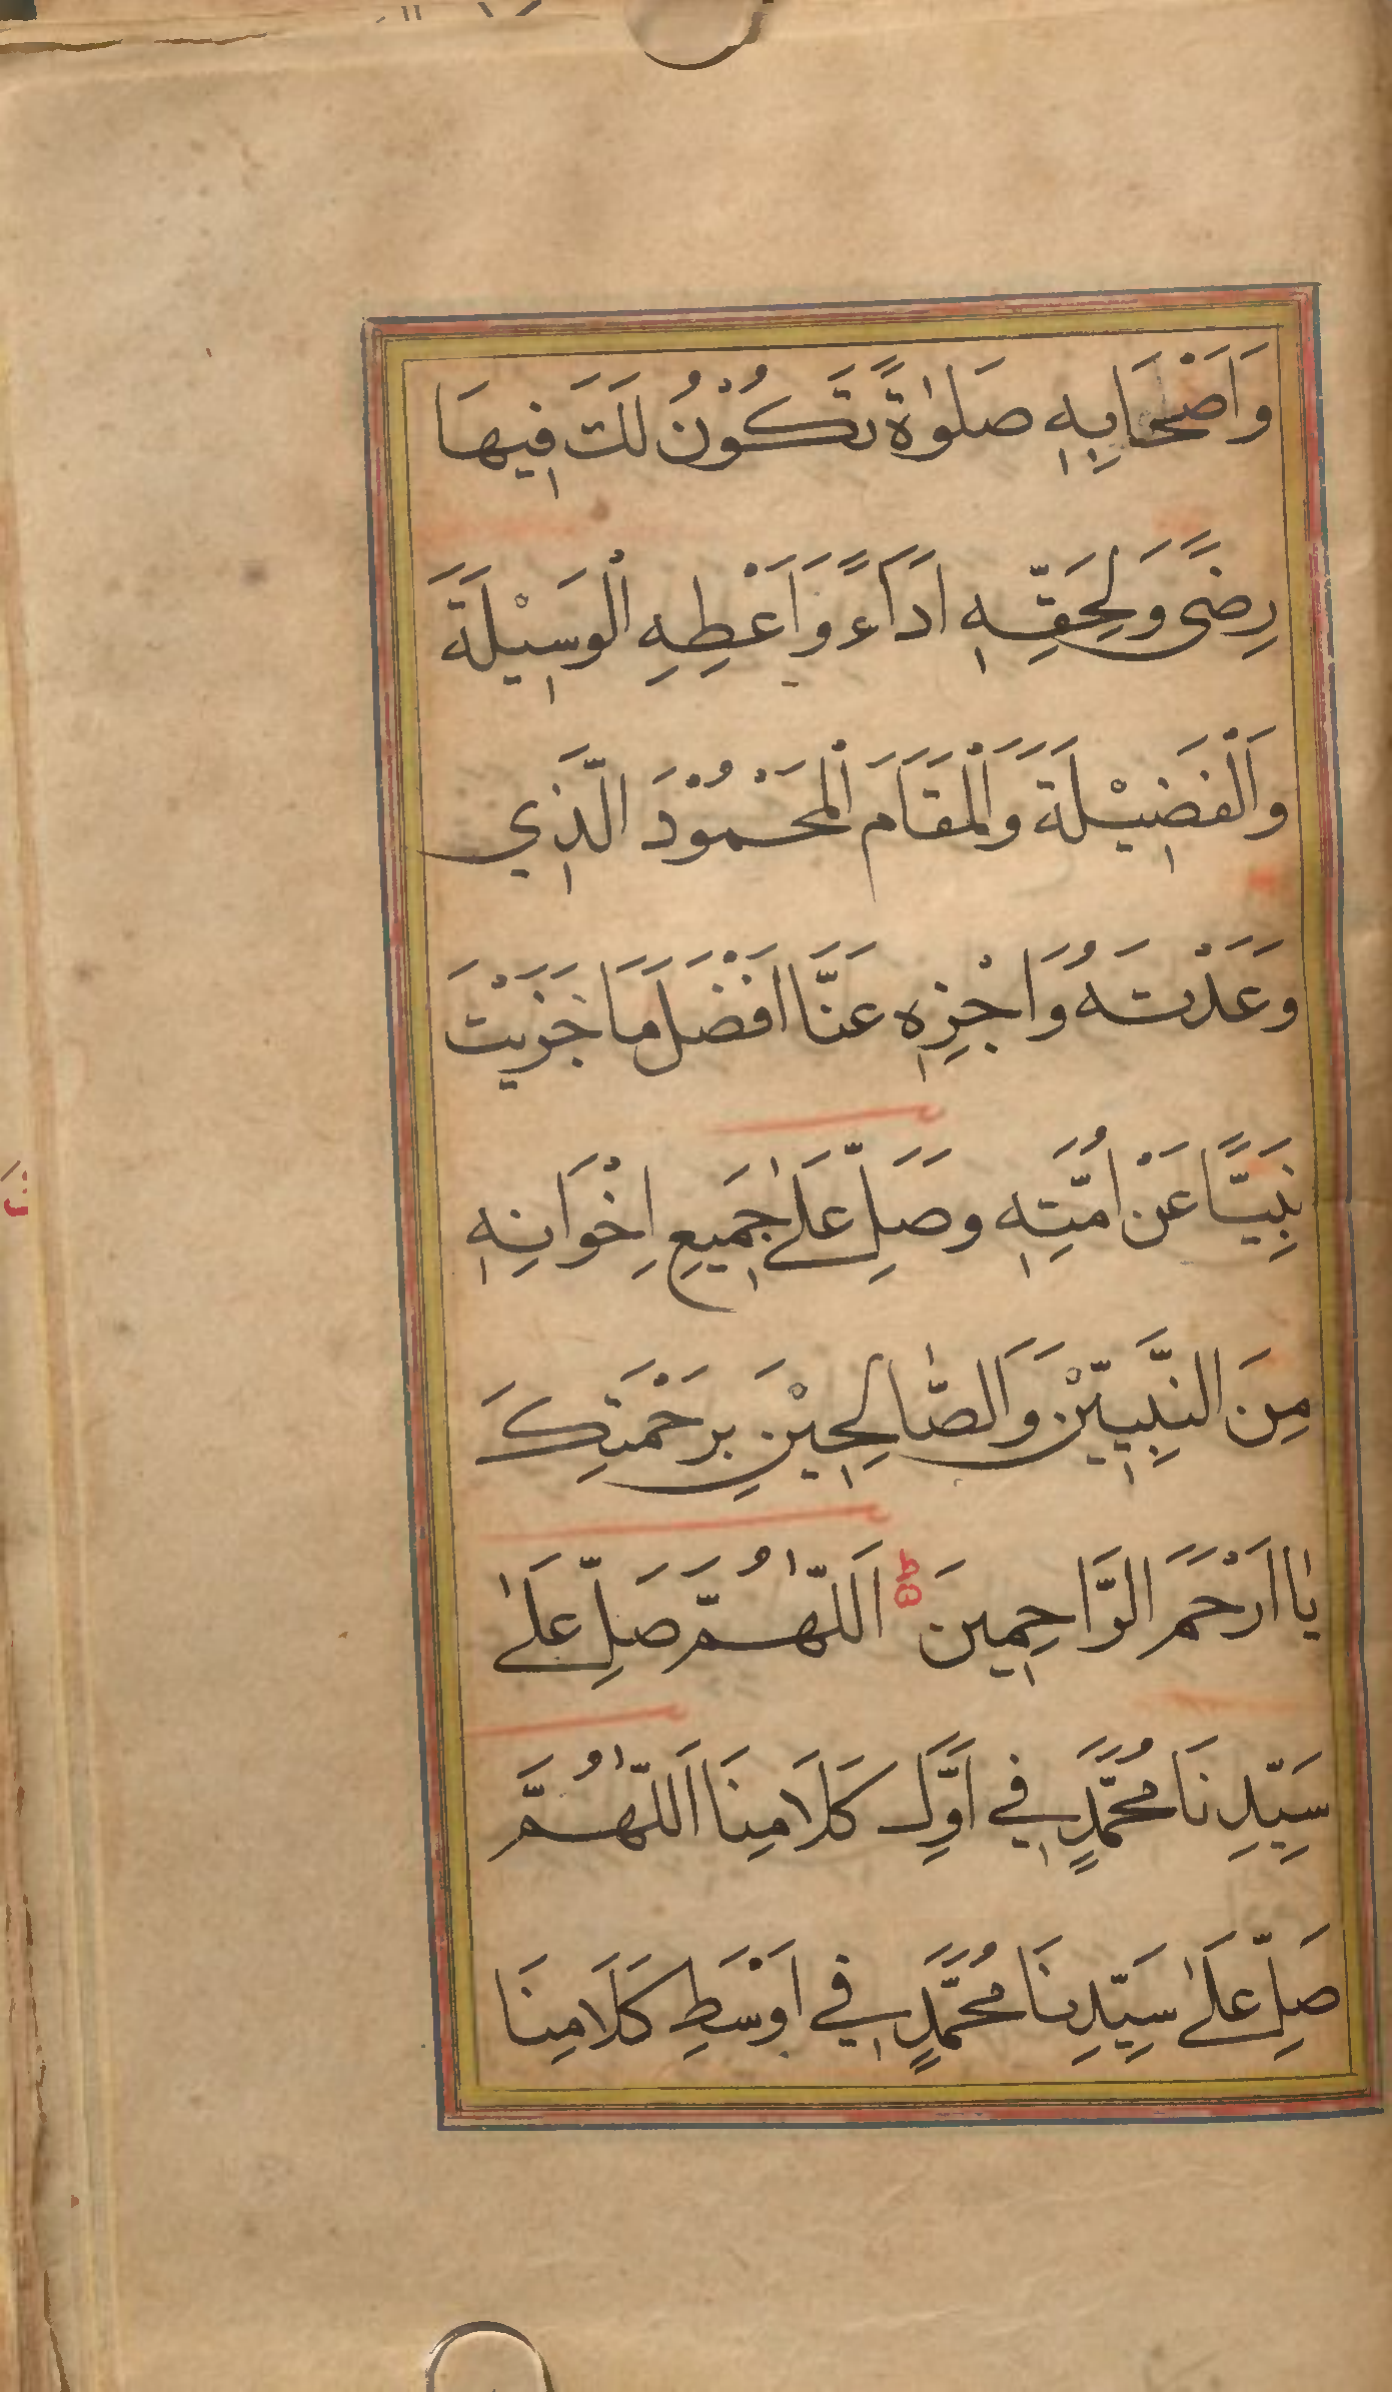 وَاَصْحَابِهٖ صَلٰوةً تَكُوْنُ لَكَ فِيهَا
رِضًى وَلِحَقِّهٖ اَدَاءً وَاَعْطِهِ الْوَسِيْلَةَ
وَالْفَضِيْلَةَ وَالْمَقَامَ الْمَحْمُوْدَ الَّذِي
وَعَدْتَهُ وَاَجْزِهٖ عَنَّا اَفْضَلَ مَا جَزَيْتَ
نَبِيًّا عَنْ اُمَّتِهٖ وَصَلِّ عَلٰى جَمِيعِ اِخْوَانِهٖ
مِنَ النَّبِيِّيْنَ وَالصَّالِحِيْنَ بِرَحْمَتِكَ
يَا اَرْحَمَ الرَّاحِمِينَ اَللّٰهُمَّ صَلِّ عَلٰى
سَيِّدِنَا مُحَمَّدٍ فِي اَوَّلِ كَلَامِنَا اَللّٰهُمَّ
صَلِّ عَلٰى سَيِّدِنَا مُحَمَّدٍ فِي اَوْسَطِ كَلَامِنَا